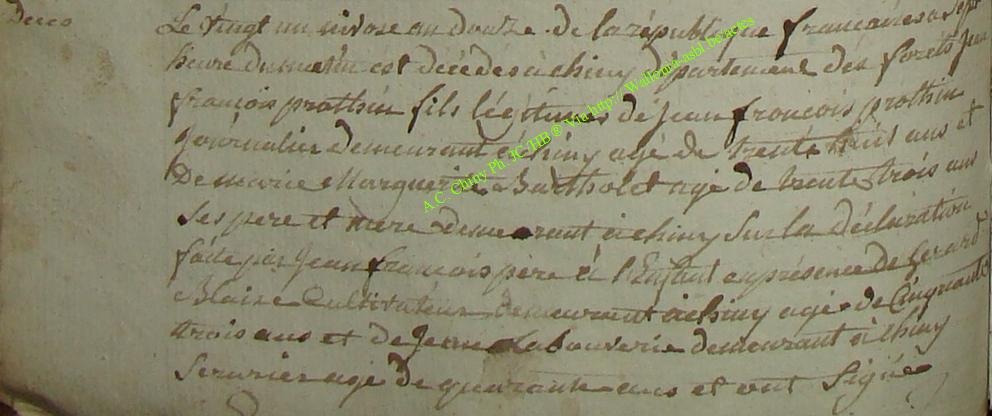 Deces
Le vingt un nivose an douze de la république françaises a sept
heure du matin est décédés à chiny département des forets Jean
françois prothin fils légitimes de jean françois prothin
journalier demeurant à chiny agé de trente huit ans et
De marie Marguerite Bartholet agé de trente trois ans
Ses pere et mere demeurant à chiny Sur la déclaration
faite par Jean françois père à l'Enfant en présence de Gerard
Blaise Cultivateur demeurant à chiny agé de Cinquante
trois ans et de Labouverie demeurant à chiny
Serurier agé de quarante ans et ont Signé
A.C. Chiny Ph. JC HB ® Via http:// Wallonia-asbl.be/actes